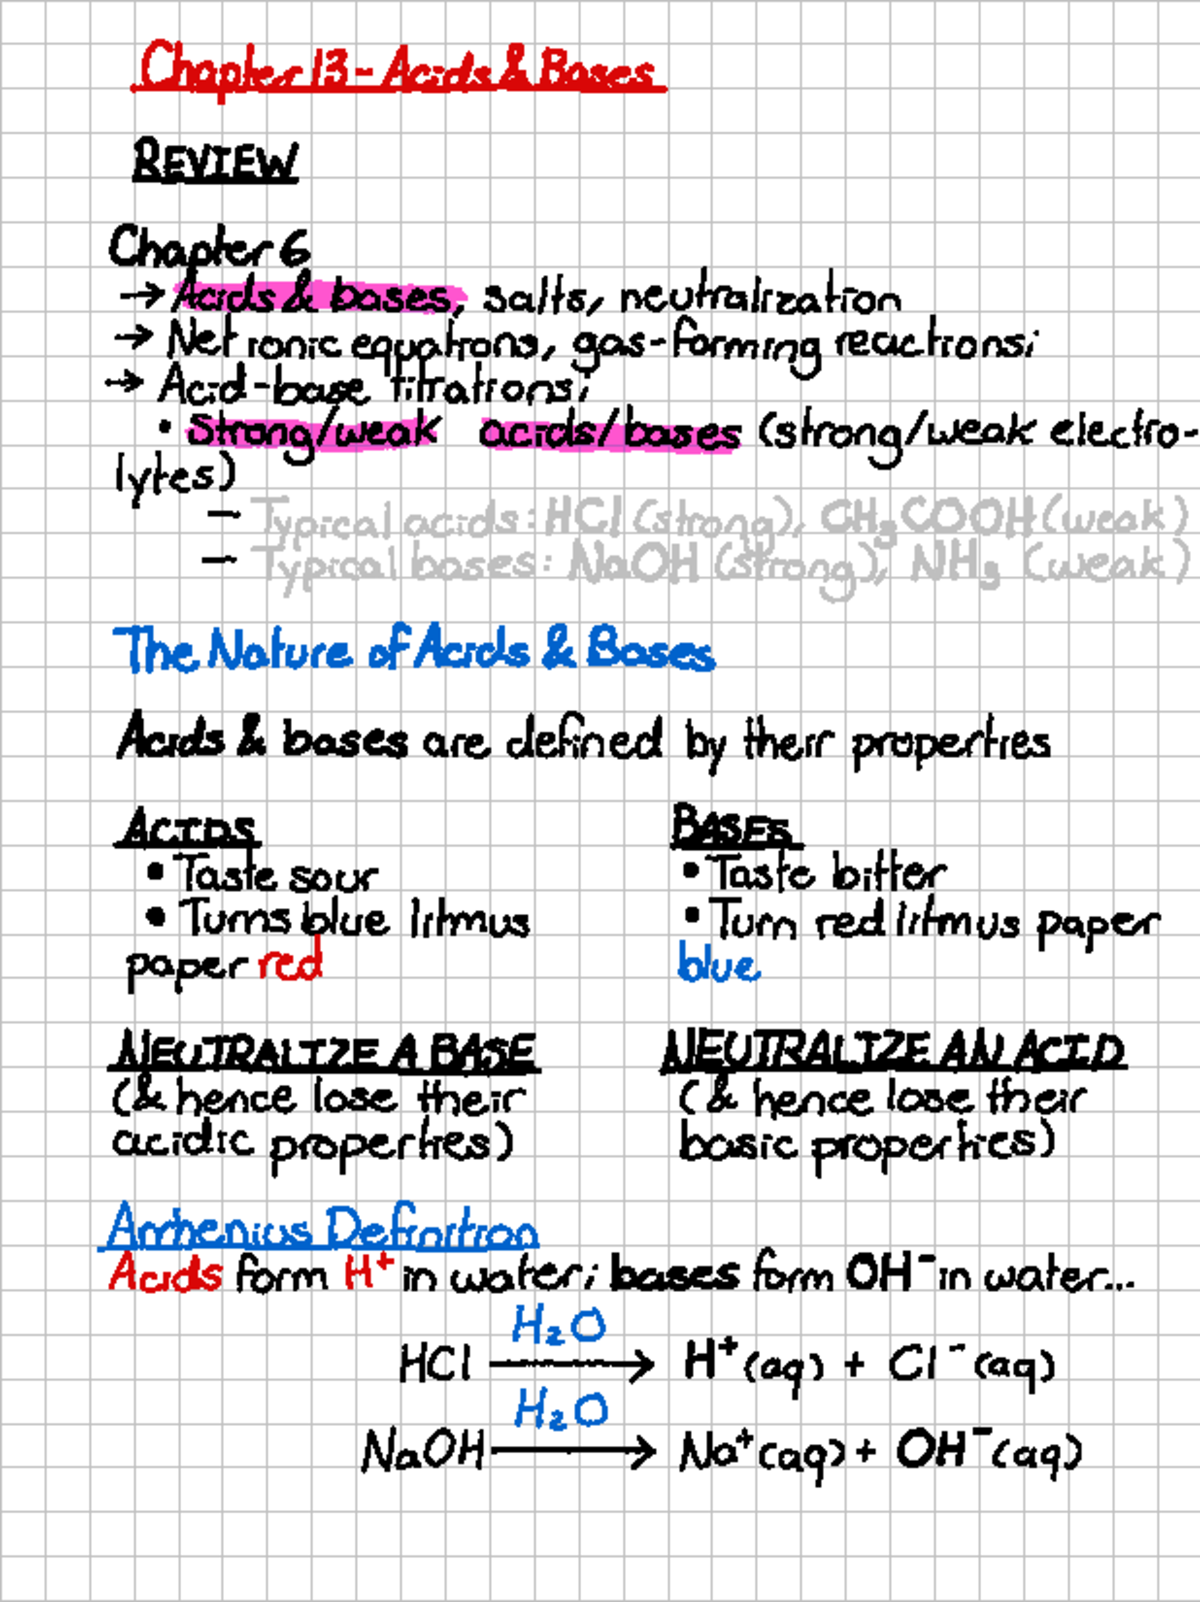 Chapter 13 - Acids & Bases
REVIEW
Chapter 6
→ Acids & bases, salts, neutralization
→ Net ionic equations, gas-forming reactions;
→ Acid-base titrations;
• Strong/weak acids/bases (strong/weak electro-
lytes)
— Typical acids: HCl (strong), CH₃COOH (weak)
— Typical bases: NaOH (strong), NH₃ (weak)
The Nature of Acids & Bases
Acids & bases are defined by their properties
ACIDS
• Taste sour
• Turns blue litmus
paper red
NEUTRALIZE A BASE
(& hence lose their
acidic properties)
BASES
• Taste bitter
• Turn red litmus paper
blue
NEUTRALIZE AN ACID
(& hence lose their
basic properties)
Arrhenius Definition
Acids form H⁺ in water; bases form OH⁻ in water...
H₂O
HCl → H⁺(aq) + Cl⁻(aq)
H₂O
NaOH → Na⁺(aq) + OH⁻(aq)